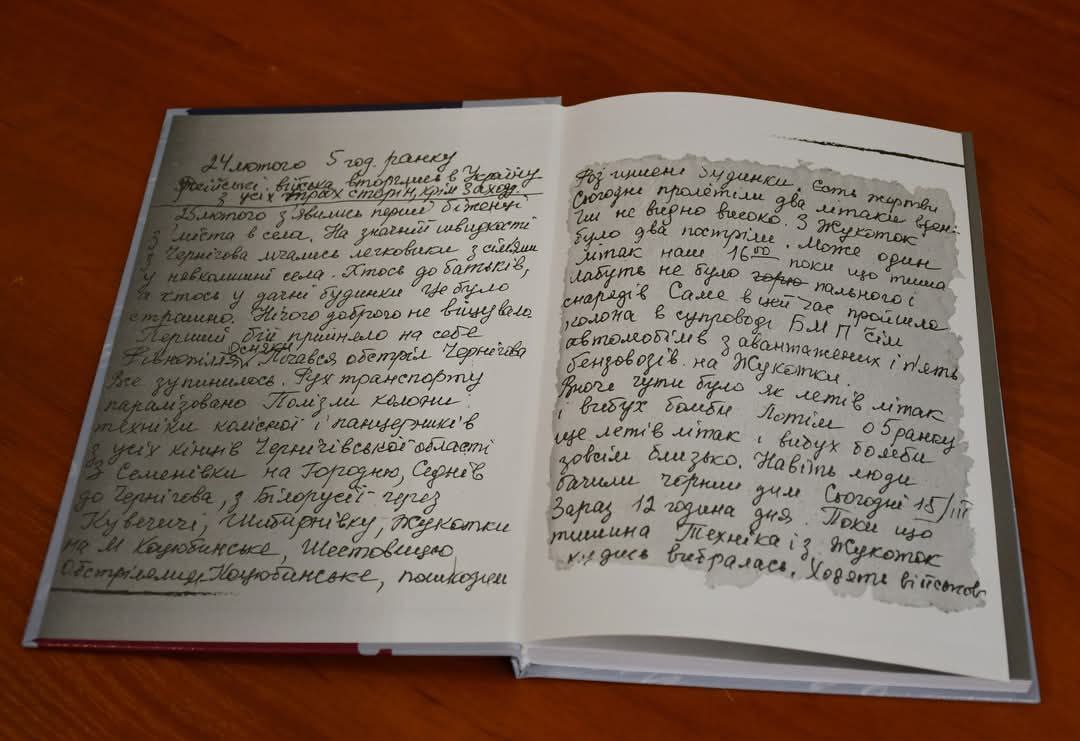 24 лютого 5 год. ранку
Російські війська вторглись в Україну
з усіх трьох сторін, крім Заходу
25 лютого з'явились перші біженці
з міста в села. На значній швидкості
з Чернігова мчались легковики з сім'ями
у навколишні села. Хтось до батьків,
а хтось у дачні будинки Це було
страшно. Нічого доброго не віщувало
Перший бій прийняло на себе
Почався обстріл Чернігова
Все зупинилось. Рух транспорту
паралізовано Полізли колони
техніки колісної і панцерників
з усіх кінців Чернігівської області
З Семенівки на Городню, Седнів
до Чернігова, з Білорусії через
Кувечичі, Жукотки
на М Коцюбинське, Шестовицю
Обстріляли Коцюбинське, пошкоджен
будинки. Єсть жертви
Сьогодні пролетіли два літаки
чи не видно високо. З Жукоток
було два постріли. Може один
літак наш 16 00 поки що тиша
мабуть не було пального і
снарядів Саме в цей час пройшла
колона в супроводі БМП сім
автомобілів завантажених і п'ять
бензовозів на Жукотки.
Вночі чути було як летів літак
і вибух бомби Потім о 5 ранку
ще летів літак і вибух бомби
зовсім близько. Навіть люди
бачили чорний дим Сьогодні 15/III
Зараз 12 година дня. Поки що
тишина Техніка із Жукоток
кудись вибралась. Ходять військов